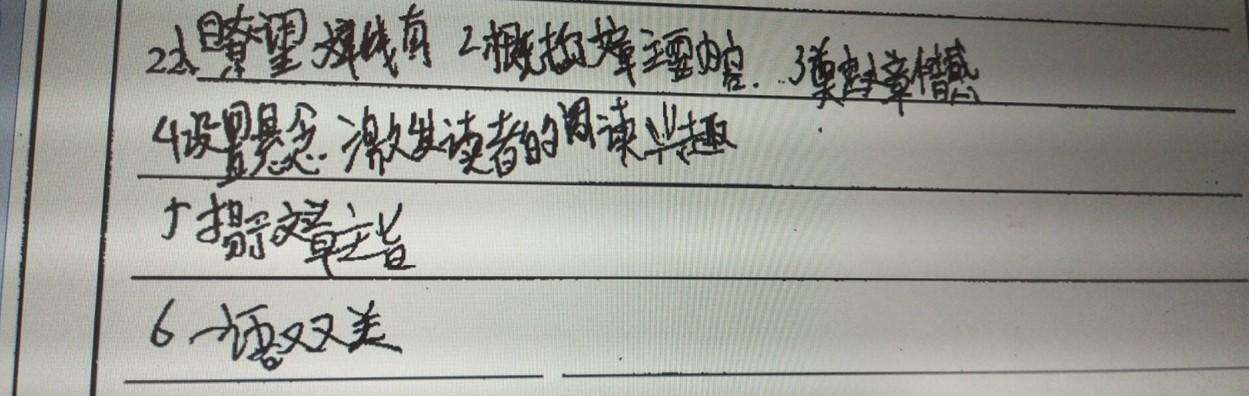 22、瞭望 线有 2概括文章主要内容. 3奠定文章情感
4设置悬念 激发读者的阅读兴趣
5 揭示文章主旨
6 一语双关